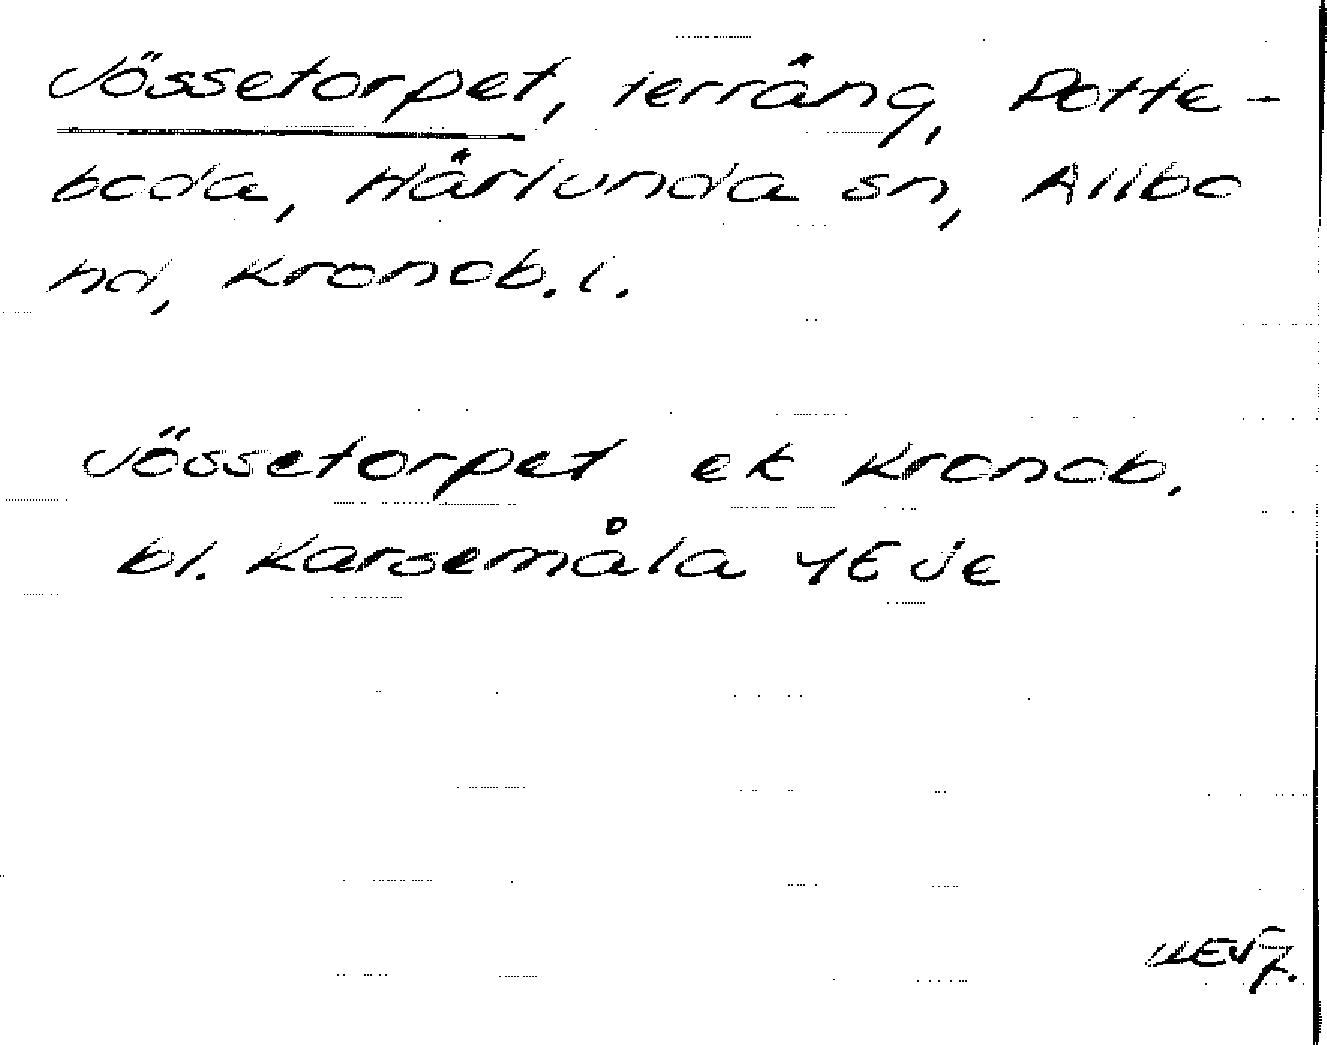 Jössetorpet, terräng, Potte-
boda, Härlunda sn, Allbo
hd, Kronob. l.
Jössetorpet ek Kronob.
bl. Karsemåla 4E je